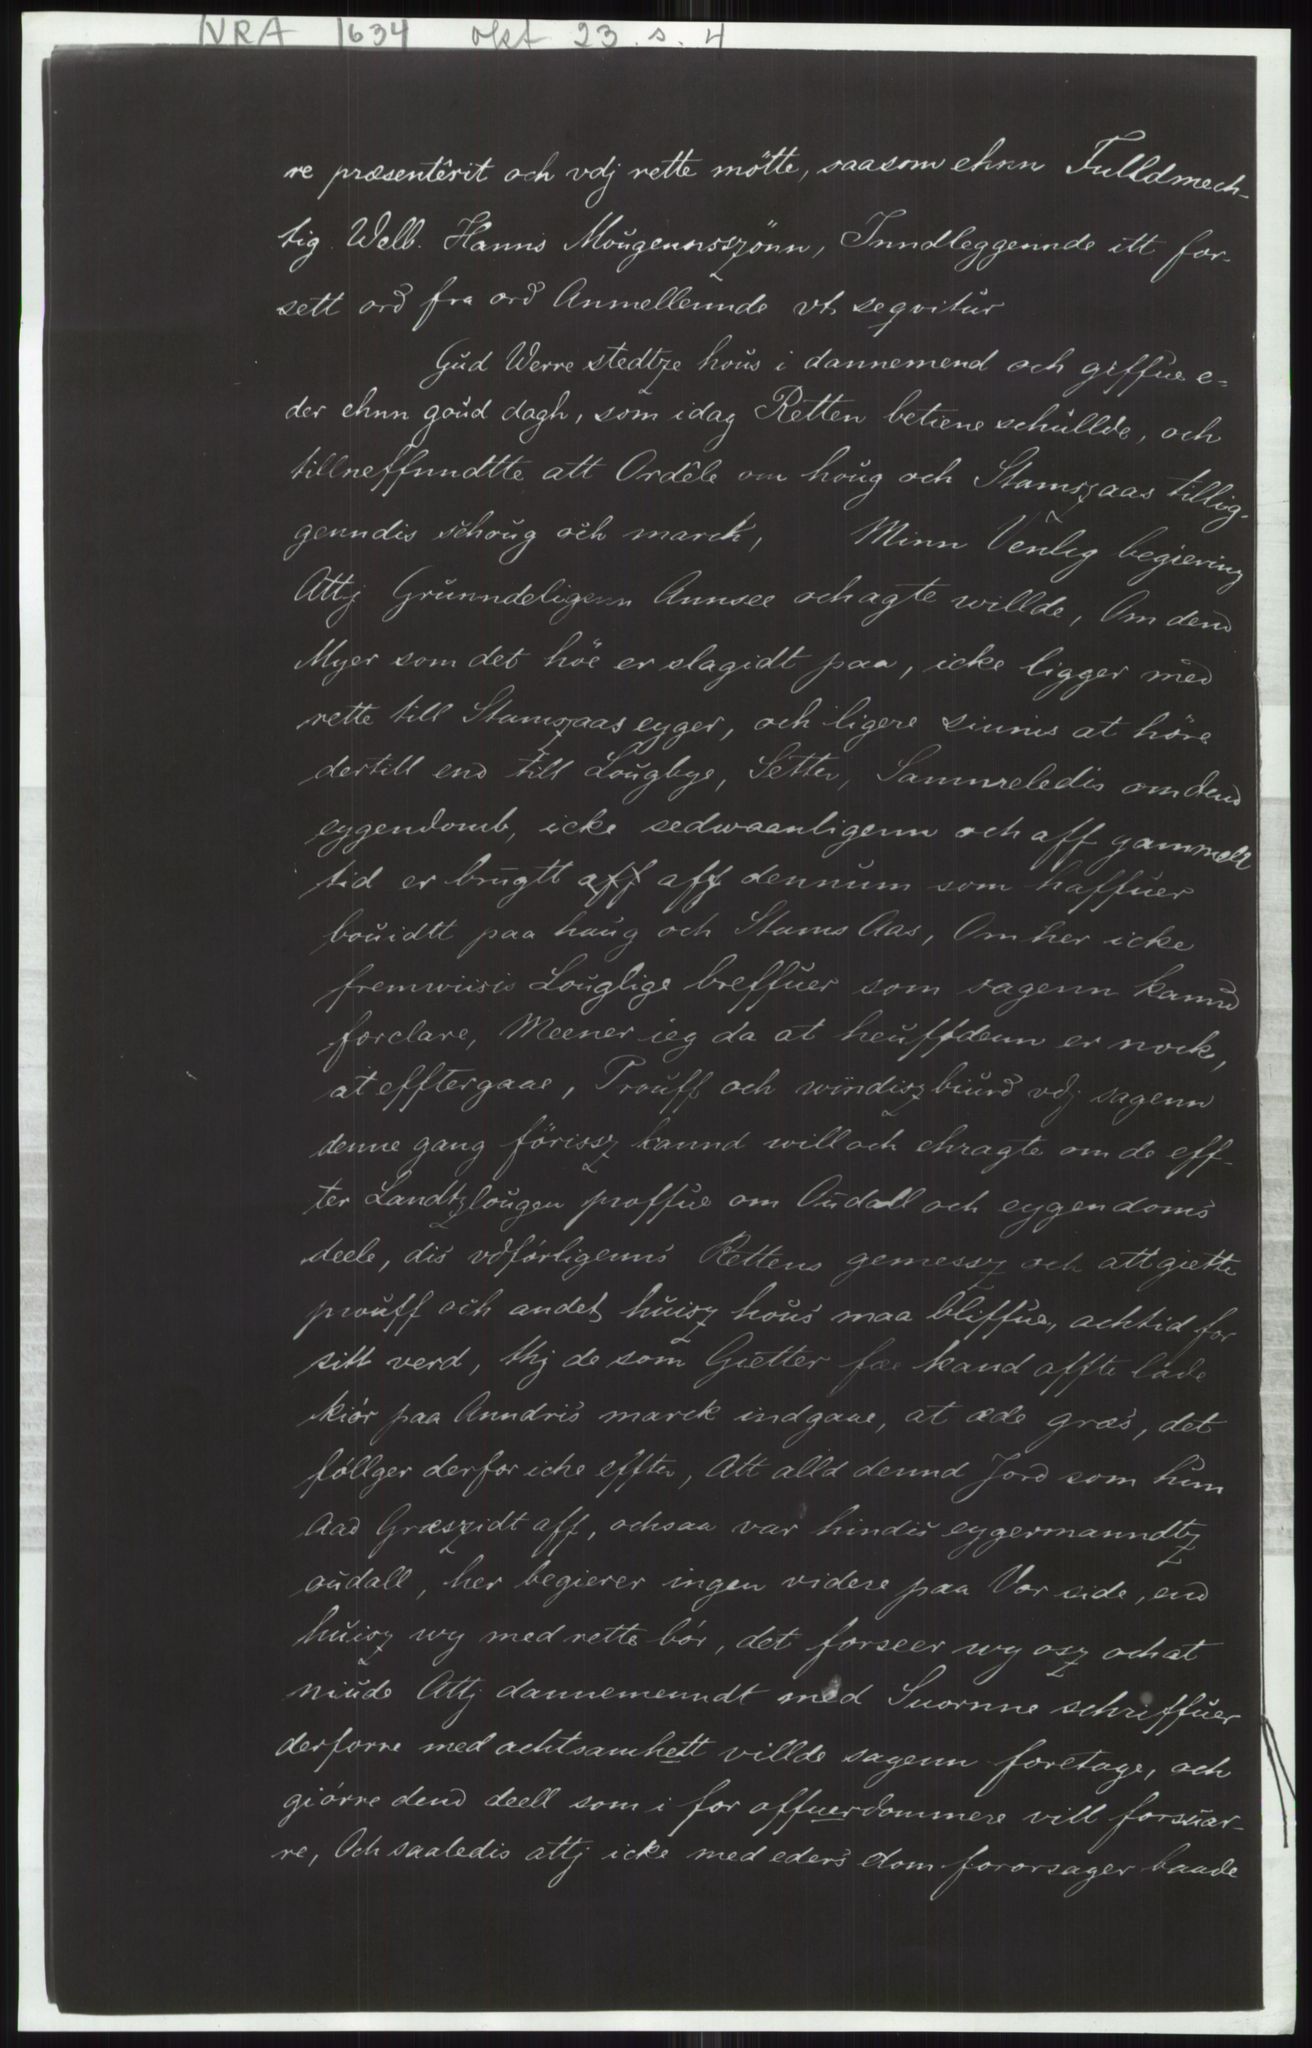 NRA 1634 okt 23. s. 4
re præsentêrit och vdj rette mötte, saasom ehnn Fulldmech-
tig Welb. Hanns Mougennsszönn, Inndleggennde itt for-
sett ord fra ord Anmellennde vt seqvitur
Gud Werre stedtze hous i dannemend och giffue e-
der ehnn goud dagh, som idag Retten betiene schullde, och
tillneffnndtte att Ordêle om houg och Stamszaas tillig-
genndis schoug och marck, Minn Venlig begiering
Attj Grunndeligenn Annsee ochagte willde, Om dend
Myer som det höe er slagidt paa, icke ligger med
rette till Stamszaas eyger, och ligere siunis at höre
dertill end till Lougbye, Setter, Sammeledis om dend
eygendomb, icke sedwaanligenn och aff gammell
tid er brugtt aff aff dennum som haffuer
bouidtt paa haug och Stams Aas, Om her icke
fremwiisis Louglige breffuer som sagenn kannd
forclare, Meener ieg da at heuffdenn er nock,
at efftergaae, Prouff och windiszbiurd vdj sagenn
denne gang förissz kannd will och ehragte om de eff-
ter Landtzlougen proffue om Oudall och eygendoms
deele, dis vdförligenns Rettens gemessz och att giette
prouff och andet huisz hous maa bliffue, achtid for
sitt verd, thj de som Gietter fæ kand affte lade
kiör paa Anndris marck indgaae, at æde græs, det
föllger derfor icke effter, Att alld dennd Jord som hun
Aad Græszidt aff, ochsaa var hindis eygermanndtz
oudall, her begierer ingen videre paa Vor side, end
huisz wy med rette bör, det forseer wy osz och at
niude Attj dannemenndt med Suornne schriffuer
derforre med achtsamhett villde sagenn foretage, och
giörre dend deell som i for offuerdommere vill forsuar-
re, Och saaledis attj icke med eders dom fororsager baade